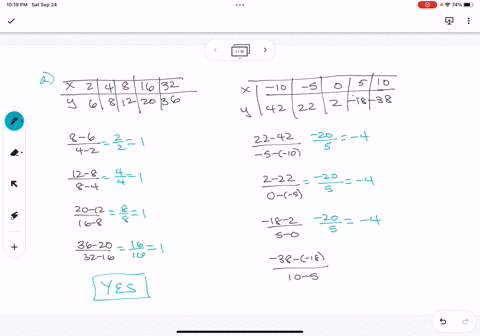 10:19 PM Sat Sep 24
74%
1/18
a)
x 2 4 8 16 32
y 6 8 12 20 36
8-6/4-2 = 2/2 = 1
12-8/8-4 = 4/4 = 1
20-12/16-8 = 8/8 = 1
36-20/32-16 = 16/16 = 1
YES
x -10 -5 0 5 10
y 42 22 2 -18 -38
22-42/-5-(-10) -20/5 = -4
2-22/0-(-5) = -20/5 = -4
-18-2/5-0 -20/5 = -4
-38-(-18)/10-5